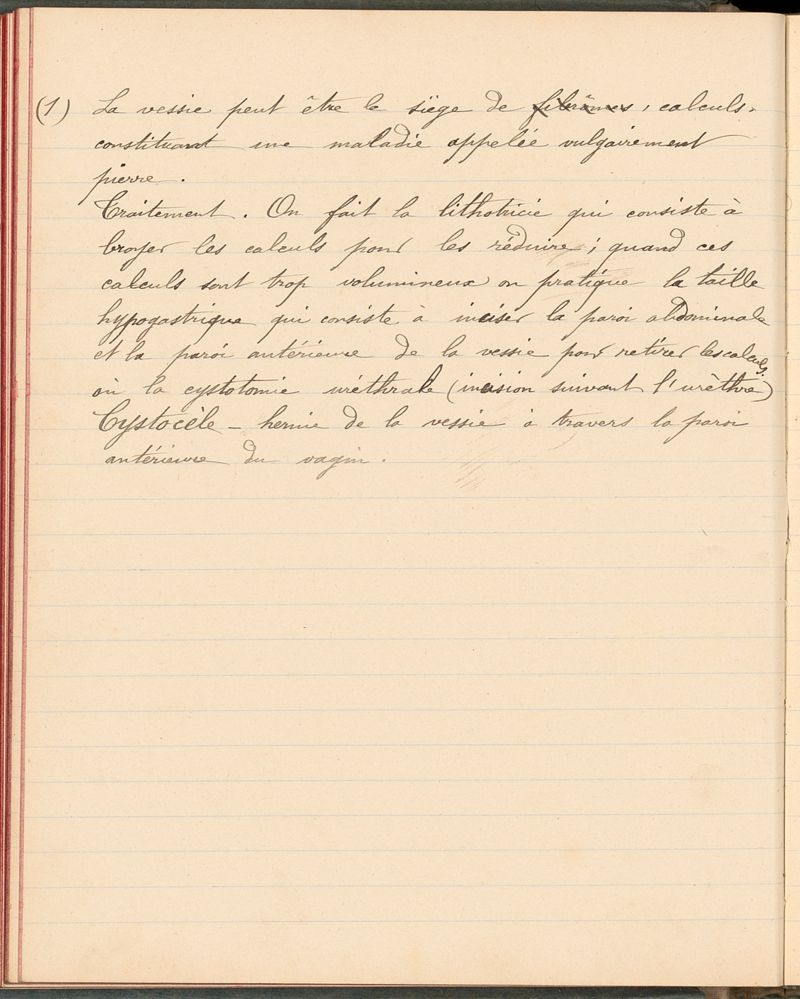 (1) La vessie peut être le siège de fibrômes, calculs,
constituant une maladie appelée vulgairement
pierre.
Traitement. On fait la lithotricie qui consiste à
broyer les calculs pour les réduire ; quand ces
calculs sont trop volumineux on pratique la taille
hypogastrique qui consiste à inciser la paroi abdominale
et la paroi antérieure de la vessie pour retirer les calculs.
où la cystotomie uréthrale (incision suivant l'urèthre)
Cystocèle - hernie de la vessie à travers la paroi
antérieure du vagin.